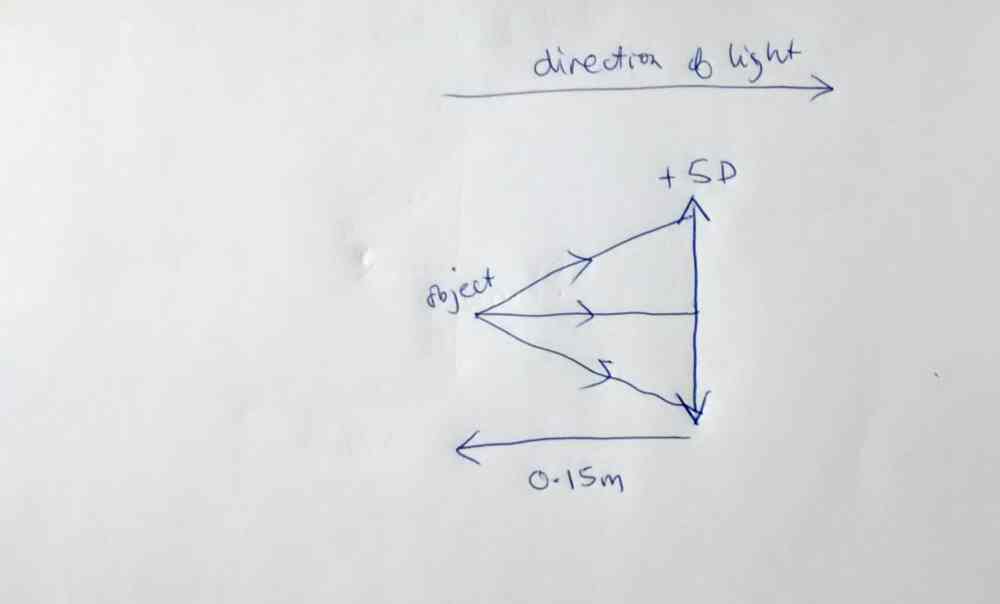 direction of light
+5D
object
0.15m